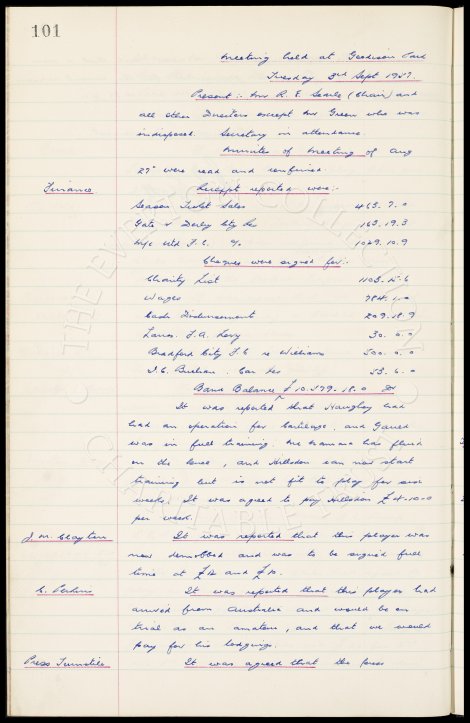 101
Meeting held at Goodison Park
Tuesday 3rd Sept 1957.
Present :- Mr R. E. Searle (Chair) and
all other Directors except Mr Green who was
indisposed. Secretary in attendance.
Minutes of Meeting of Aug
27th were read and confirmed.
Finance. Receipts reported were :-
Season Ticket Sales 463. 7. 0
Gate v Derby Cty Res 163. 19. 3
Utd F.C. % 1029. 10. 9
Cheques were signed for :-
Charity List 1105. 15. 6
Wages 784. 1. 0
Cash Disbursement 209. 18. 9
Lancs. F.A. Levy 30. 0. 0
Bradford City F.C. re Williams 500. 0. 0
I. C. Buchan. Car 53. 6. 0
Bank Balance £10,579. 18. 0 Dr
It was reported that Haughey had
had an operation for cartilage, and Gauld
was in full training. McNamara has fluid
on the knee, and Hillsdon can now start
training but is not fit to play for six
weeks. It was agreed to pay Hillsdon £4-10-0
per week.
J. M. Clayton It was reported that this player was
now demobbed and was to be signed full
time at £12 and £10.
Perkins It was reported that this player had
arrived from Australia and would be on
trial as an amateur, and that we would
pay for his lodgings.
Press Turnstile It was agreed that the Press
THE EVERTON COLLECTION
CHARITABLE